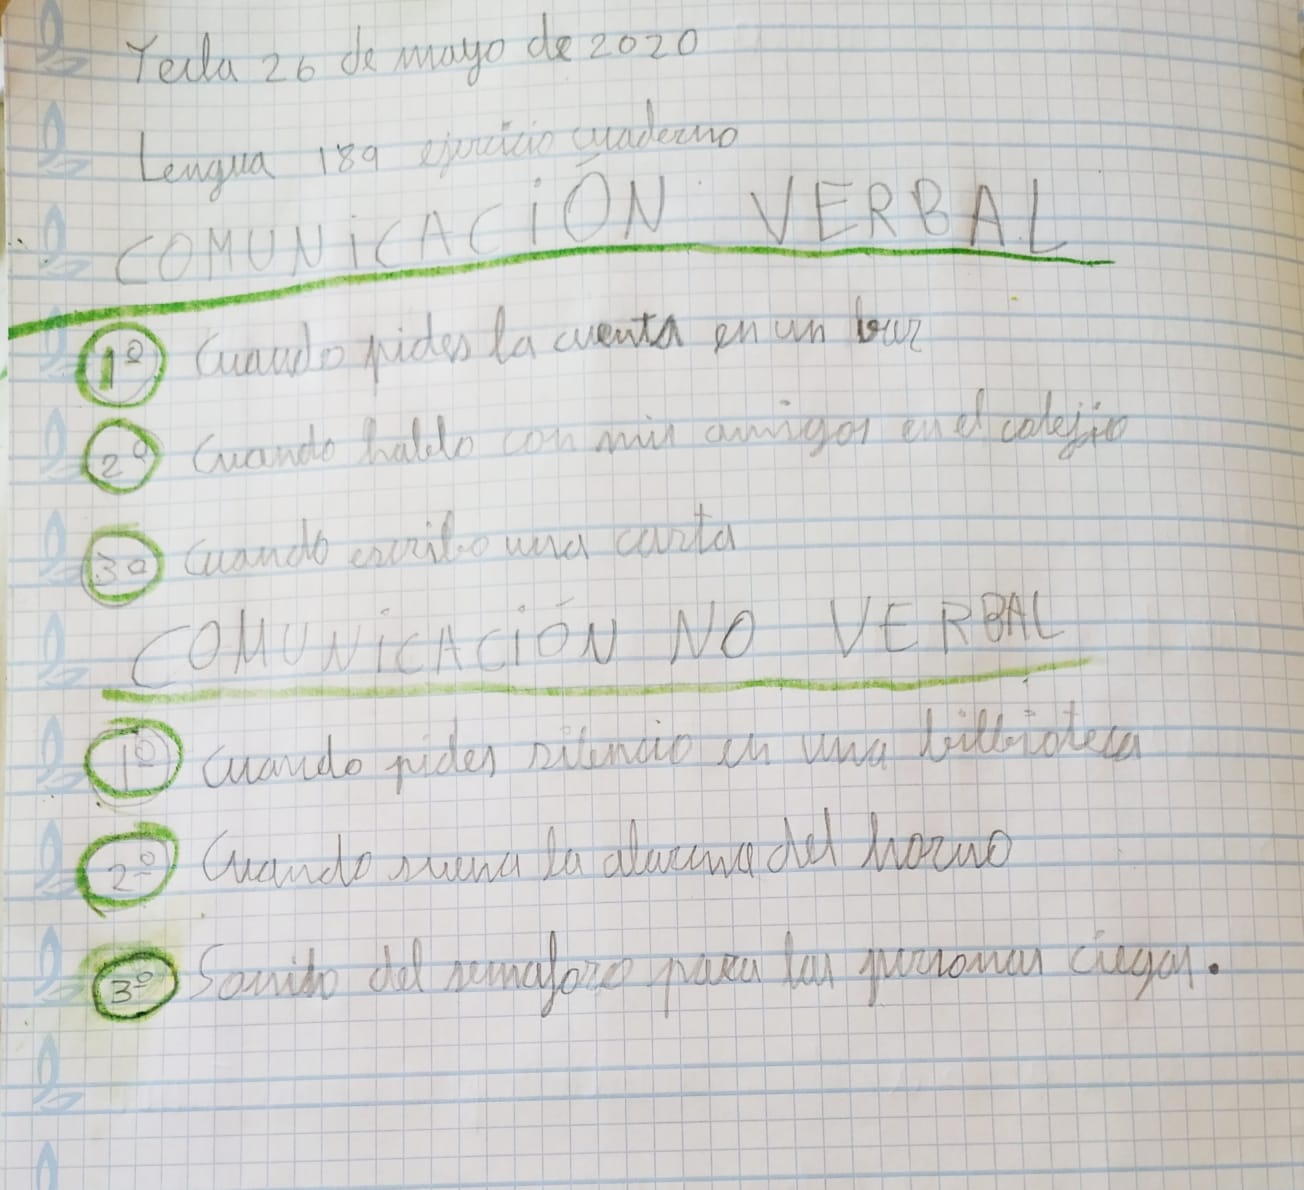 Yecla 26 de mayo de 2020
Lengua 189 ejercicio cuaderno
COMUNiCACiÓN VERBAL
1º Cuando pides la cuenta en un bar
2º Cuando hablo con mis amigos en el colejio
3º Cuando escribo una carta
COMUNiCACiÓN NO VERBAL
1º Cuando pides silencio en una bilbioteca
2º Cuando suena la alarma del horno
3º Sonido del semaforo para las personas ciegas.